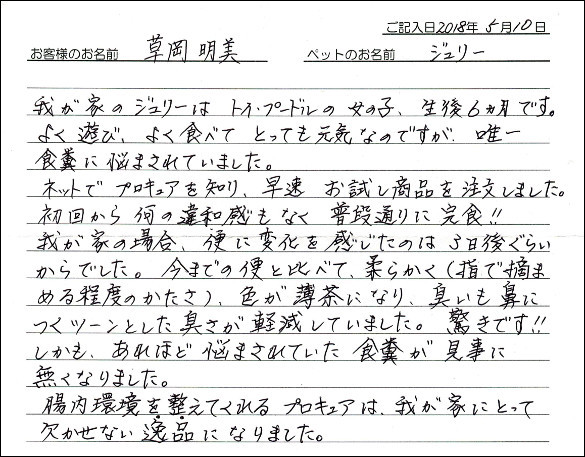 ご記入日2018年 5月10日
お客様のお名前 草岡 明美 ペットのお名前 ジュリー
我が家のジュリーは トイ・プードルの 女の子、生後6ヵ月です。
よく遊び、よく食べて とっても元気なのですが、唯一
食糞に悩まされていました。
ネットで プロキュアを知り、早速 お試し商品を注文しました。
初回から 何の違和感もなく 普段通りに完食!!
我が家の場合、便に変化を感じたのは 3日後ぐらい
からでした。今までの便と比べて、柔らかく(指で摘ま
める程度のかたさ)、色が薄茶になり、臭いも鼻に
つくツーンとした臭さが軽減していました。驚きです!!
しかも、あれほど悩まされていた 食糞が見事に
無くなりました。
腸内環境を整えてくれる プロキュアは、我が家にとって
欠かせない逸品になりました。